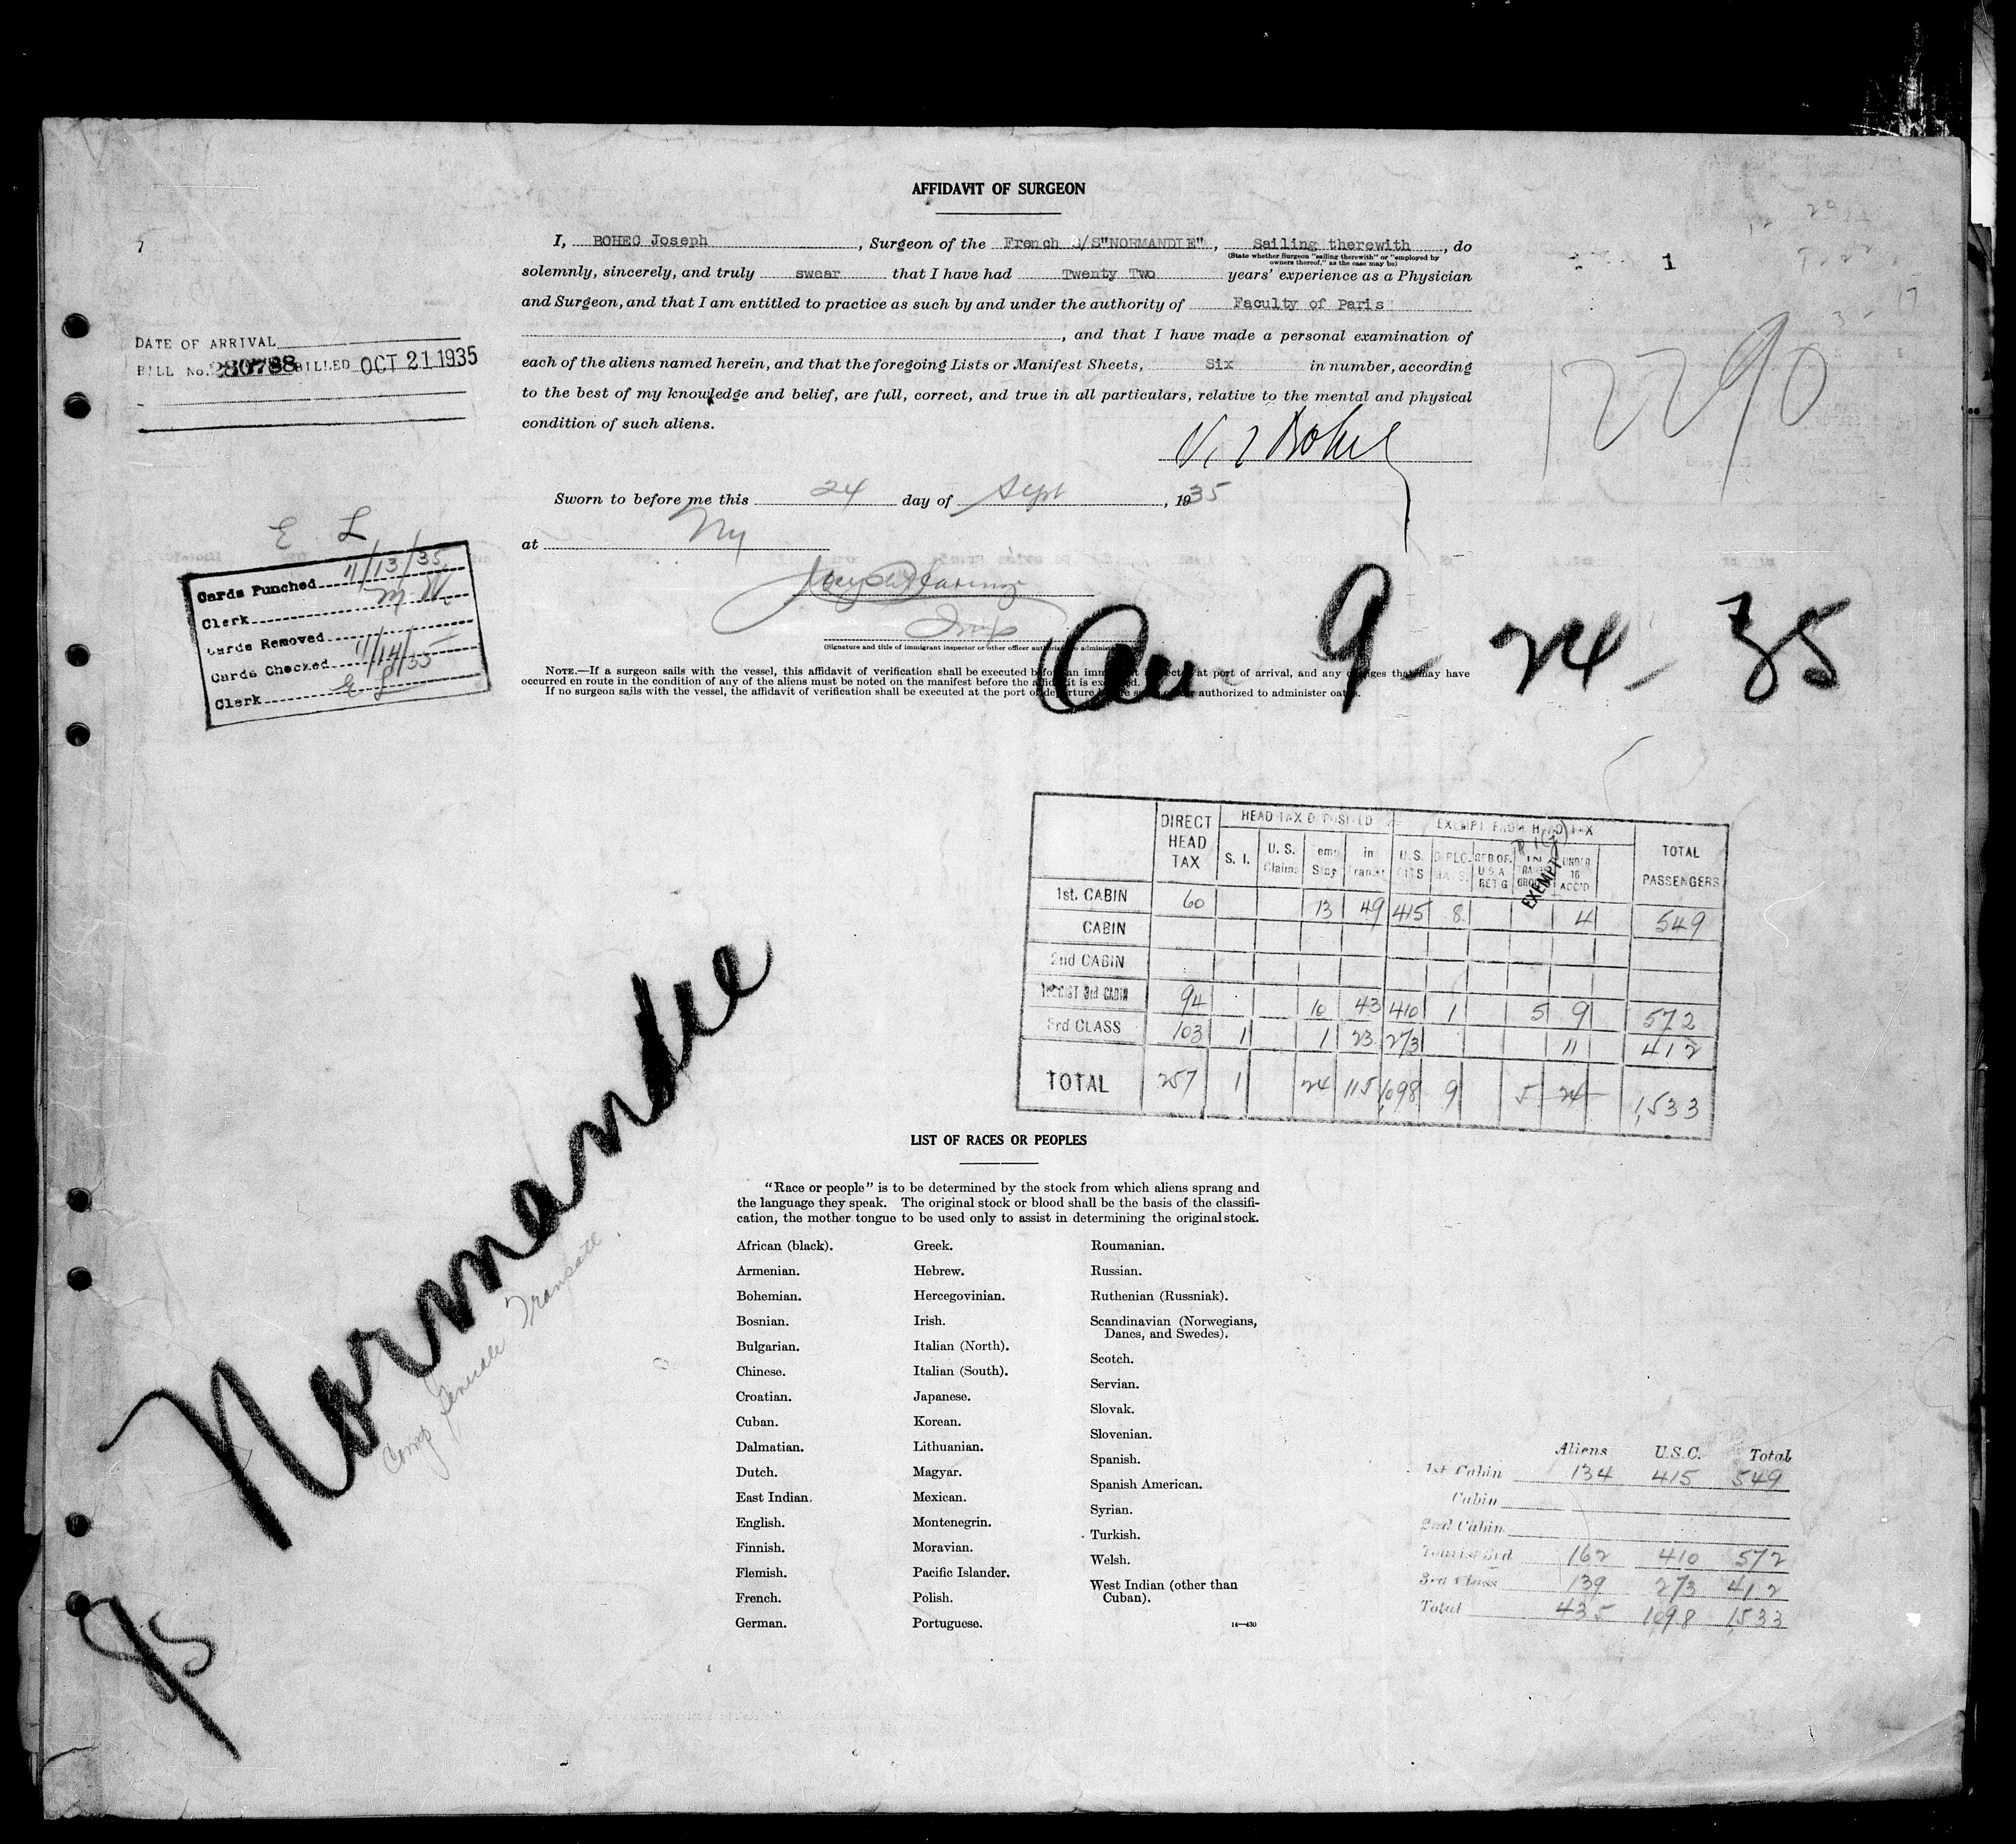 AFFIDAVIT OF SURGEON
I, BOHEC Joseph, Surgeon of the French S/S"NORMANDIE", Sailing therewith, do
(State whether Surgeon "sailing therewith" or "employed by
owners thereof," as the case may be)
solemnly, sincerely, and truly swear that I have had Twenty Two years' experience as a Physician
and Surgeon, and that I am entitled to practice as such by and under the authority of Faculty of Paris
, and that I have made a personal examination of
each of the aliens named herein, and that the foregoing Lists or Manifest Sheets, Six in number, according
to the best of my knowledge and belief, are full, correct, and true in all particulars, relative to the mental and physical
condition of such aliens.
Sworn to before me this 24 day of Sept, 1935
at Ny
(Signature and title of immigrant inspector or other officer authorized to administer
NOTE.—If a surgeon sails with the vessel, this affidavit of verification shall be executed before an immigrant inspector at port of arrival, and any changes that may have
occurred en route in the condition of any of the aliens must be noted on the manifest before the affidavit is executed.
If no surgeon sails with the vessel, the affidavit of verification shall be executed at the port of departure before an officer authorized to administer oaths.
1
1290
DATE OF ARRIVAL
BILL No. 280788 BILLED OCT 21 1935
E L
Cards Punched 11/13/35
Clerk
Cards Removed
Cards Checked 11/14/35
Clerk E L
Arr 9-24-35
DIRECT HEAD TAX HEAD TAX DEPOSITED EXEMPT FROM HEAD TAX TOTAL PASSENGERS
S. I. U. S. Claims Temp Stay in Transit U. S. CITS DIPLO. RES OF. U S A RET G IN TRANS GROUP UNDER 16 ACC'D
EXEMPT
1st. CABIN 60 13 49 415 8 4 549
CABIN
2nd CABIN
TOURIST 3rd CABIN 94 10 43 410 1 5 9 572
3rd CLASS 103 1 1 23 273 11 412
TOTAL 257 1 24 115 1,098 9 5 24 1,533
Normandie
Comp Generale Transatl.
95
LIST OF RACES OR PEOPLES
"Race or people" is to be determined by the stock from which aliens sprang and
the language they speak. The original stock or blood shall be the basis of the classifi-
cation, the mother tongue to be used only to assist in determining the original stock.
African (black).
Armenian.
Bohemian.
Bosnian.
Bulgarian.
Chinese.
Croatian.
Cuban.
Dalmatian.
Dutch.
East Indian.
English.
Finnish.
Flemish.
French.
German.
Greek.
Hebrew.
Hercegovinian.
Irish.
Italian (North).
Italian (South).
Japanese.
Korean.
Lithuanian.
Magyar.
Mexican.
Montenegrin.
Moravian.
Pacific Islander.
Polish.
Portuguese.
Roumanian.
Russian.
Ruthenian (Russniak).
Scandinavian (Norwegians,
Danes, and Swedes).
Scotch.
Servian.
Slovak.
Slovenian.
Spanish.
Spanish American.
Syrian.
Turkish.
Welsh.
West Indian (other than
Cuban).
14—430
Aliens U.S.C. Total
1st Cabin 134 415 549
Cabin
2nd Cabin
Tourist 3rd 162 410 572
3rd Class 139 273 412
Total 435 1098 1,533